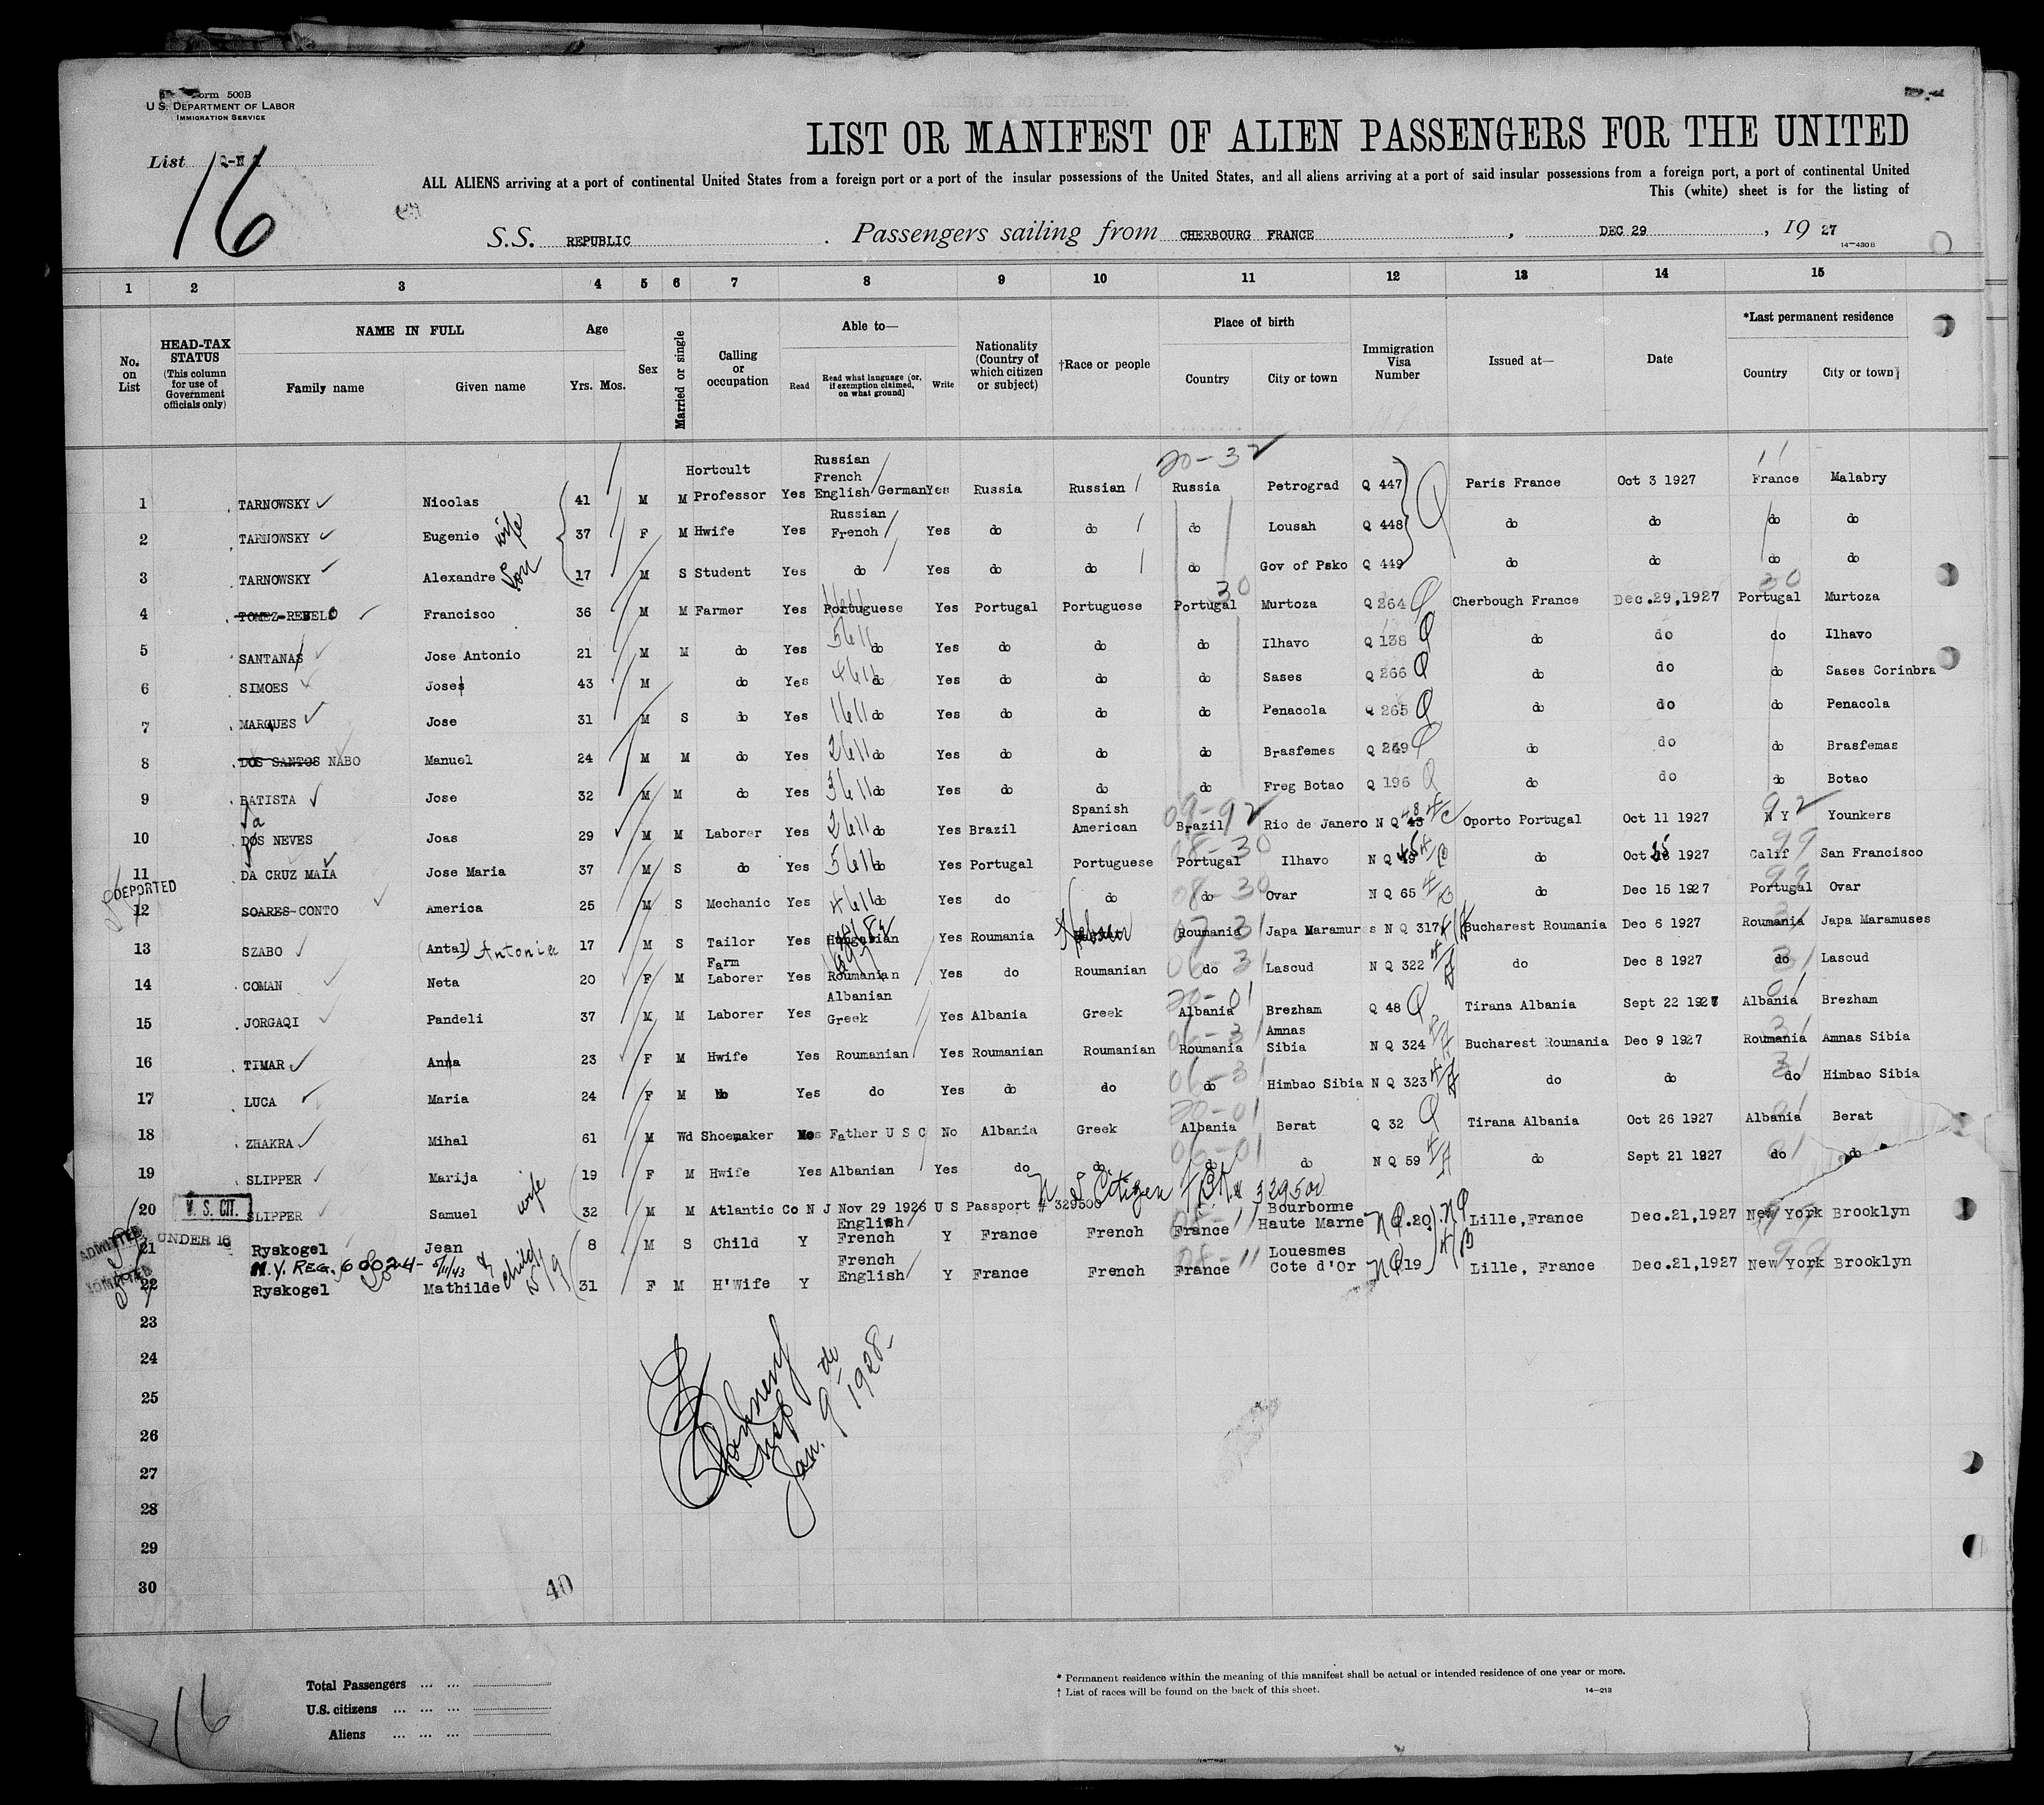 Form 500B
U.S. DEPARTMENT OF LABOR
IMMIGRATION SERVICE
List
16
LIST OR MANIFEST OF ALIEN PASSENGERS FOR THE UNITED
ALL ALIENS arriving at a port of continental United States from a foreign port or a port of the insular possessions of the United States, and all aliens arriving at a port of said insular possessions from a foreign port, a port of continental United
This (white) sheet is for the listing of
S.S. REPUBLIC . Passengers sailing from CHERBOURG FRANCE , DEC 29 , 19 27
14-430B
1 2 3 4 5 6 7 8 9 10 11 12 13 14 15
No. on List
HEAD-TAX STATUS (This column for use of Government officials only)
NAME IN FULL
Family name Given name
Age
Yrs. Mos.
Sex
Married or single
Calling or occupation
Able to—
Read Read what language (or, if exemption claimed, on what ground) Write
Nationality (Country of which citizen or subject)
†Race or people
Place of birth
Country City or town
Immigration Visa Number
Issued at—
Date
*Last permanent residence
Country City or town
20-32
1 TARNOWSKY Nicolas 41 M M Hortcult Professor Yes Russian French English German Yes Russia Russian Russia Petrograd Q 447 Paris France Oct 3 1927 France Malabry
2 TARNOWSKY Eugenie wife 37 F M Hwife Yes Russian French Yes do do do Lousah Q 448 do do do do
3 TARNOWSKY Alexandre Son 17 M S Student Yes do Yes do do do Gov of Psko Q 449 do do do do
4 TOMEZ-REBELO Francisco 36 M M Farmer Yes Portuguese Yes Portugal Portuguese Portugal 30 Murtoza Q 264 Q Cherbough France Dec.29,1927 Portugal 30 Murtoza
5 SANTANAS Jose Antonio 21 M M do Yes do Yes do do do Ilhavo Q 138 Q do do do Ilhavo
6 SIMOES Joses 43 M do Yes do Yes do do do Sases Q 266 Q do do do Sases Corinbra
7 MARQUES Jose 31 M S do Yes do Yes do do do Penacola Q 265 Q do do do Penacola
8 DOS SANTOS NABO Manuel 24 M M do Yes do Yes do do do Brasfemes Q 249 Q do do do Brasfemas
9 BATISTA Jose 32 M M do Yes do Yes do do do Freg Botao Q 196 Q do do do Botao
10 DOS NEVES Joas 29 M M Laborer Yes do Yes Brazil Spanish American Brazil 09-92 Rio de Janero N Q 43 48 Oporto Portugal Oct 11 1927 N Y Younkers
11 DA CRUZ MAIA Jose Maria 37 M S do Yes do Yes Portugal Portuguese Portugal Ilhavo N Q do Oct 1927 Calif San Francisco
DEPORTED
12 SOARES-CONTO America 25 M S Mechanic Yes do Yes do do do 08-30 Ovar N Q 65 do Dec 15 1927 Portugal Ovar
13 SZABO (Antal) Antonie 17 M S Tailor Yes Hungarian Yes Roumania Hebrew Roumania Japa Maramur s N Q 317 Bucharest Roumania Dec 6 1927 Roumania Japa Maramuses
14 COMAN Neta 20 F M Farm Laborer Yes Roumanian Yes do Roumanian do 06-31 Lascud N Q 322 do Dec 8 1927 do Lascud
15 JORGAQI Pandeli 37 M M Laborer Yes Albanian Greek Yes Albania Greek Albania 20-01 Brezham Q 48 Q Tirana Albania Sept 22 1927 Albania Brezham
16 TIMAR Anna 23 F M Hwife Yes Roumanian Yes Roumanian Roumanian Roumania 06-31 Amnas Sibia N Q 324 Bucharest Roumania Dec 9 1927 Roumania Amnas Sibia
17 LUCA Maria 24 F M do Yes do Yes do do do 06-31 Himbao Sibia N Q 323 do do do Himbao Sibia
18 ZHAKRA Mihal 61 M Wd Shoemaker No Father U S C No Albania Greek Albania 20-01 Berat Q 32 Q Tirana Albania Oct 26 1927 Albania Berat
19 SLIPPER Marija 19 F M Hwife Yes Albanian Yes do do do 06-01 do N Q 59 do Sept 21 1927 do do
wife
U S Citizen # 329500
20 U. S. CIT. SLIPPER Samuel 32 M M Atlantic Co N J Nov 29 1926 U S Passport # 329500
ADMITTED
21 UNDER 16 Ryskogel Jean 8 M S Child Y English French Y France French France 08-11 Bourbonne Haute Marne N Q.20 Lille,France Dec.21,1927 New York Brooklyn
N.Y. REG. 60024- 5/11/43
& child
ADMITTED
22 Ryskogel Mathilde 31 F M H'Wife Y French English Y France French France 08-11 Louesmes Cote d'Or N Q 19 Lille, France Dec.21,1927 New York Brooklyn
23
24
25
26
27
28
29
30
Insp
Jan. 9 1928
40
16
Total Passengers
U.S. citizens
Aliens
* Permanent residence within the meaning of this manifest shall be actual or intended residence of one year or more.
† List of races will be found on the back of this sheet.
14-213